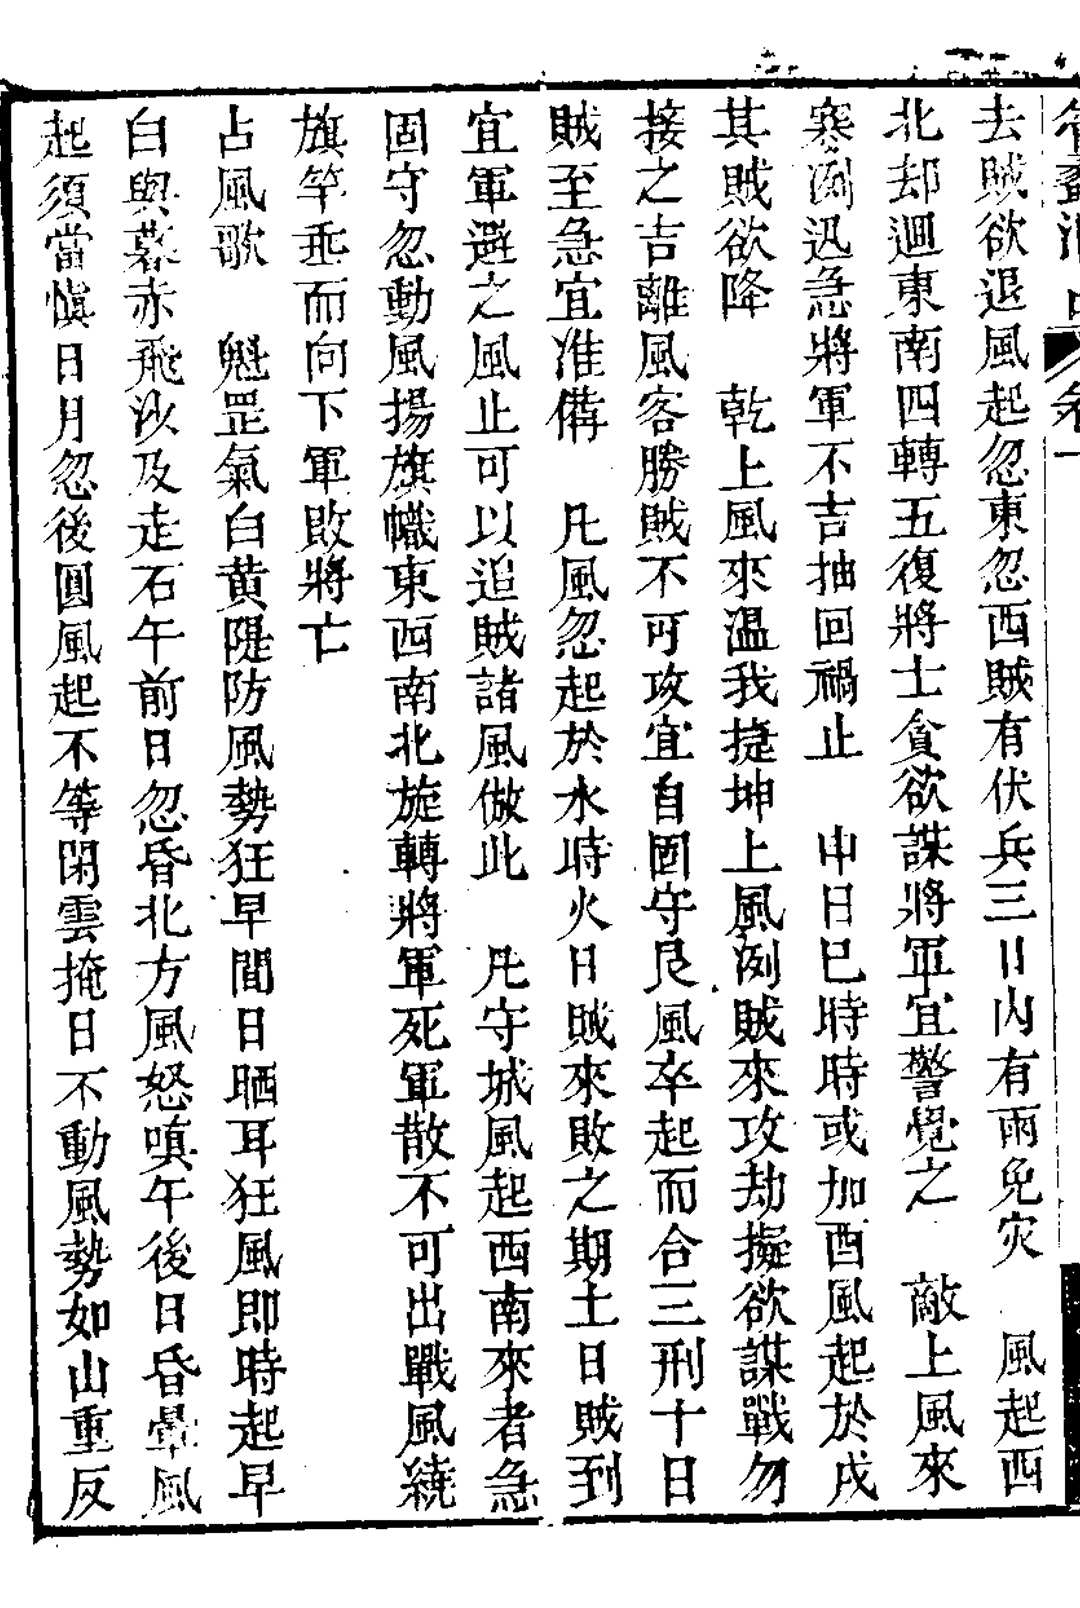 去賊欲退風起忽東忽西賊有伏兵三日內有雨免灾　風起西
北却迴東南四轉五復將士貪欲謀將軍宜警覺之　敵上風來
寒冽迅急將軍不吉抽回禍止　申日巳時時或加酉風起於戌
其賊欲降　乾上風來溫我捷坤上風冽賊來攻劫擬欲謀戰勿
接之吉離風客勝賊不可攻宜自固守艮風卒起而合三刑十日
賊至急宜准備　凡風忽起於水時火日賊來敗之期土日賊到
宜軍避之風止可以追賊諸風倣此　凡守城風起西南來者急
固守忽動風揚旗幟東西南北旋轉將軍死軍散不可出戰風繞
旗竿垂而向下軍敗將亡
占風歌　魁罡氣白黄隄防風勢狂早間日晒耳狂風即時起早
白與暮赤飛沙及走石午前日忽昏北方風怒嗔午後日昏暈風
起須當慎日月忽後圓風起不等閑雲掩日不動風勢如山重反